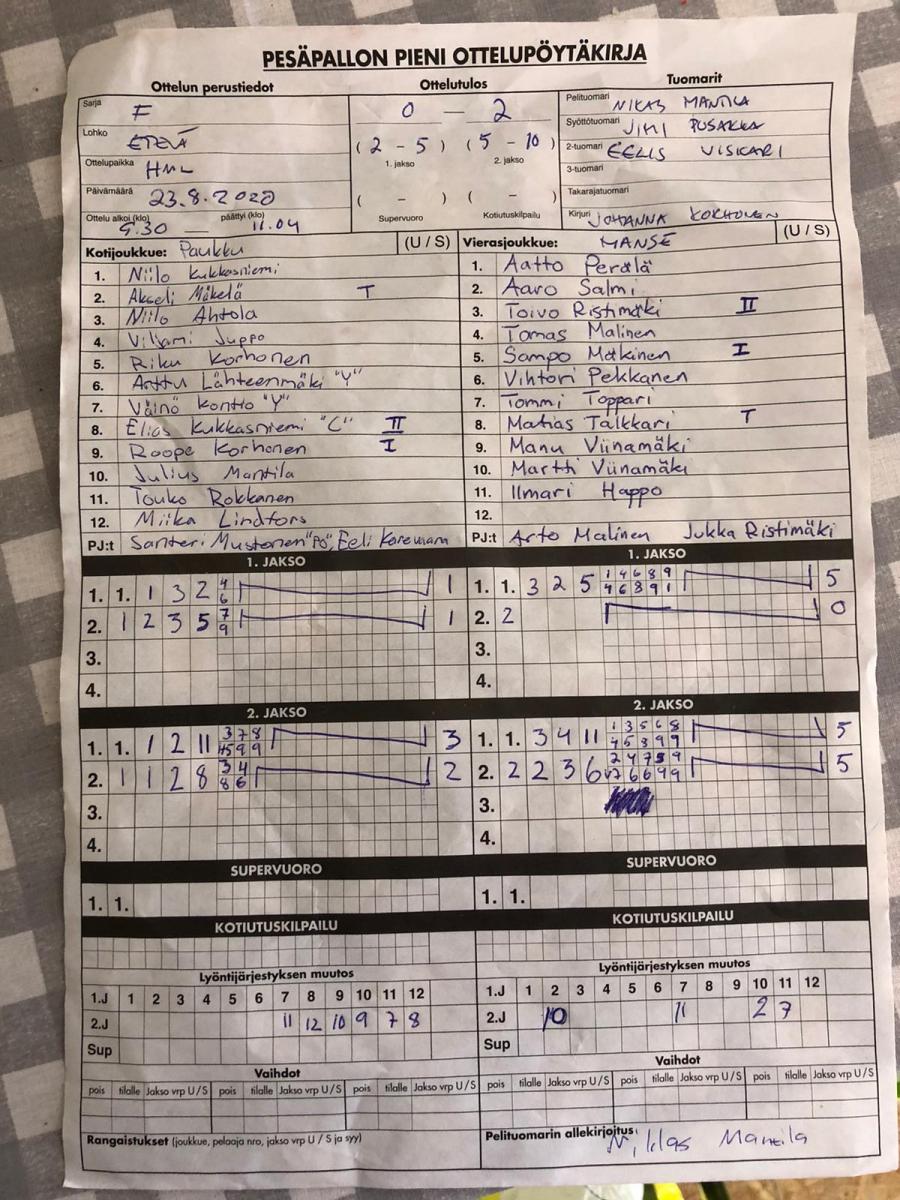 PESÄPALLON PIENI OTTELUPÖYTÄKIRJA
Ottelun perustiedot Ottelutulos Tuomarit
Sarja F
Lohko ETELÄ
Ottelupaikka HML
Päivämäärä 23.8.2020
Ottelu alkoi (klo) 9.30 — päättyi (klo) 11.04
0 — 2
( 2 - 5 ) ( 5 - 10 )
1. jakso 2. jakso
( - ) ( - )
Supervuoro Kotiutuskilpailu
Pelituomari NIKLAS MANTILA
Syöttötuomari JIMI PUSAKKA
2-tuomari EELIS VISKARI
3-tuomari
Takarajatuomari
Kirjuri JOHANNA KORHONEN
Kotijoukkue: Paukku (U / S)
1. Niilo Kukkasniemi
2. Akseli Mäkelä T
3. Niilo Ahtola
4. Viljami Juppo
5. Riku Korhonen
6. Arttu Lähteenmäki "Y"
7. Väinö Kontio "Y"
8. Elias Kukkasniemi "C" II
9. Roope Korhonen I
10. Julius Mantila
11. Touko Rokkanen
12. Miika Lindfors
PJ:t Santeri Mustonen "PÖ", Eeli
Vierasjoukkue: MANSE (U / S)
1. Aatto Perälä
2. Aaro Salmi
3. Toivo Ristimäki II
4. Tomas Malinen
5. Sampo Matkinen I
6. Vihtori Pekkanen
7. Tommi Toppari
8. Matias Talkkari T
9. Manu Viinamäki
10. Martti Viinamäki
11. Ilmari Happo
12.
PJ:t Arto Malinen Jukka Ristimäki
1. JAKSO
1. 1. 1 3 2 4 1
6
2. 1 2 3 5 7 1
9
3.
4.
1. JAKSO
1. 1. 3 2 5 1 4 6 8 9 5
4 6 8 9 1
2. 2 0
3.
4.
2. JAKSO
1. 1. 1 2 11 3 7 8 3
4 5 9 9
2. 1 1 2 8 3 4 2
8 6
3.
4.
2. JAKSO
1. 1. 3 4 11 1 3 5 6 8 5
4 5 8 9 9
2. 2 2 3 6 2 4 7 5 9 5
6 6 9 9
3.
4.
SUPERVUORO
1. 1.
SUPERVUORO
1. 1.
KOTIUTUSKILPAILU
KOTIUTUSKILPAILU
Lyöntijärjestyksen muutos
1.J 1 2 3 4 5 6 7 8 9 10 11 12
2.J 11 12 10 9 7 8
Sup
Lyöntijärjestyksen muutos
1.J 1 2 3 4 5 6 7 8 9 10 11 12
2.J 10 11 2 7
Sup
Vaihdot
pois tilalle Jakso vrp U / S pois tilalle Jakso vrp U / S pois tilalle Jakso vrp U / S
Vaihdot
pois tilalle Jakso vrp U / S pois tilalle Jakso vrp U / S pois tilalle Jakso vrp U / S
Rangaistukset (joukkue, pelaaja nro, jakso vrp U / S ja syy)
Pelituomarin allekirjoitus:
Niklas Mantila